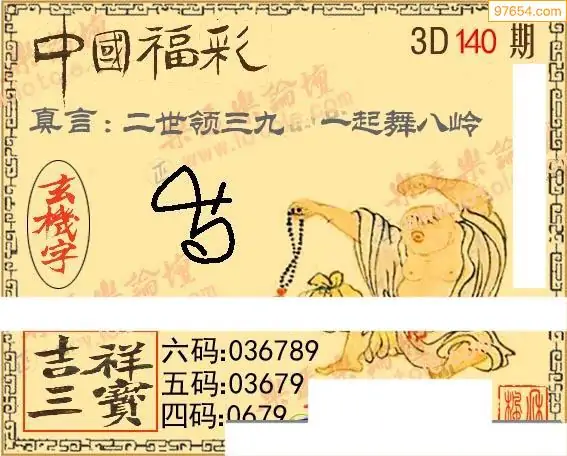 97654.com
中國福彩 3D 140 期
真言:二世领三九 一起舞八岭
玄機字
吉祥三寶
六码:036789
五码:03679
四码:0679